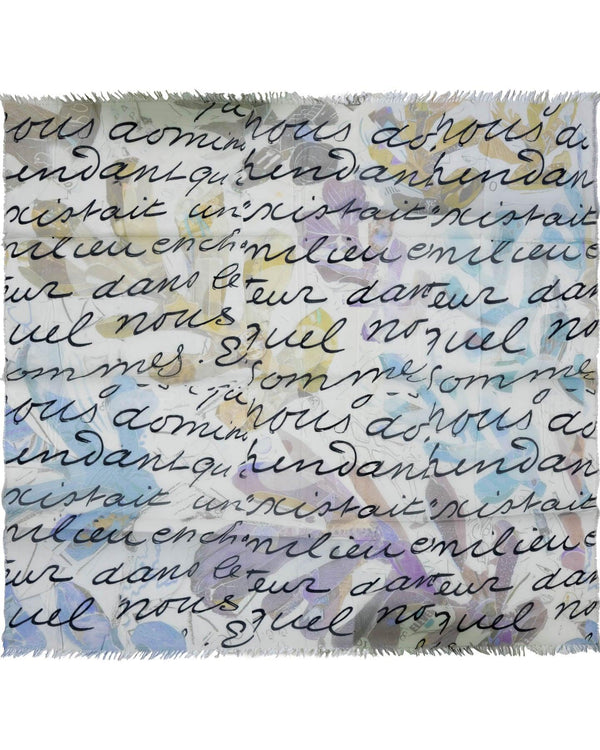 ous domin nous do nous do
endant qu hendan hendan
xistait un xistait xistait
milieu ench milieu e milieu e
eur dans le eur dan eur dan
uel nous quel no quel no
ommes. & omme somme
ous domin nous do nous do
endant qu hendan hendan
xistait un xistait xistait
milieu ench milieu e milieu e
eur dans le eur dan eur dan
uel nous & quel no quel no